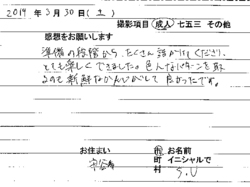 2019年3月30日(土)
撮影項目 成人 七五三 その他
感想をお願いします
準備の段階から、たくさん話が
とても楽しくできました。色んなパターンを取
るので新鮮なかんじがして良かったです。
お住まい お名前
守谷 町 イニシャルで
村 S.U